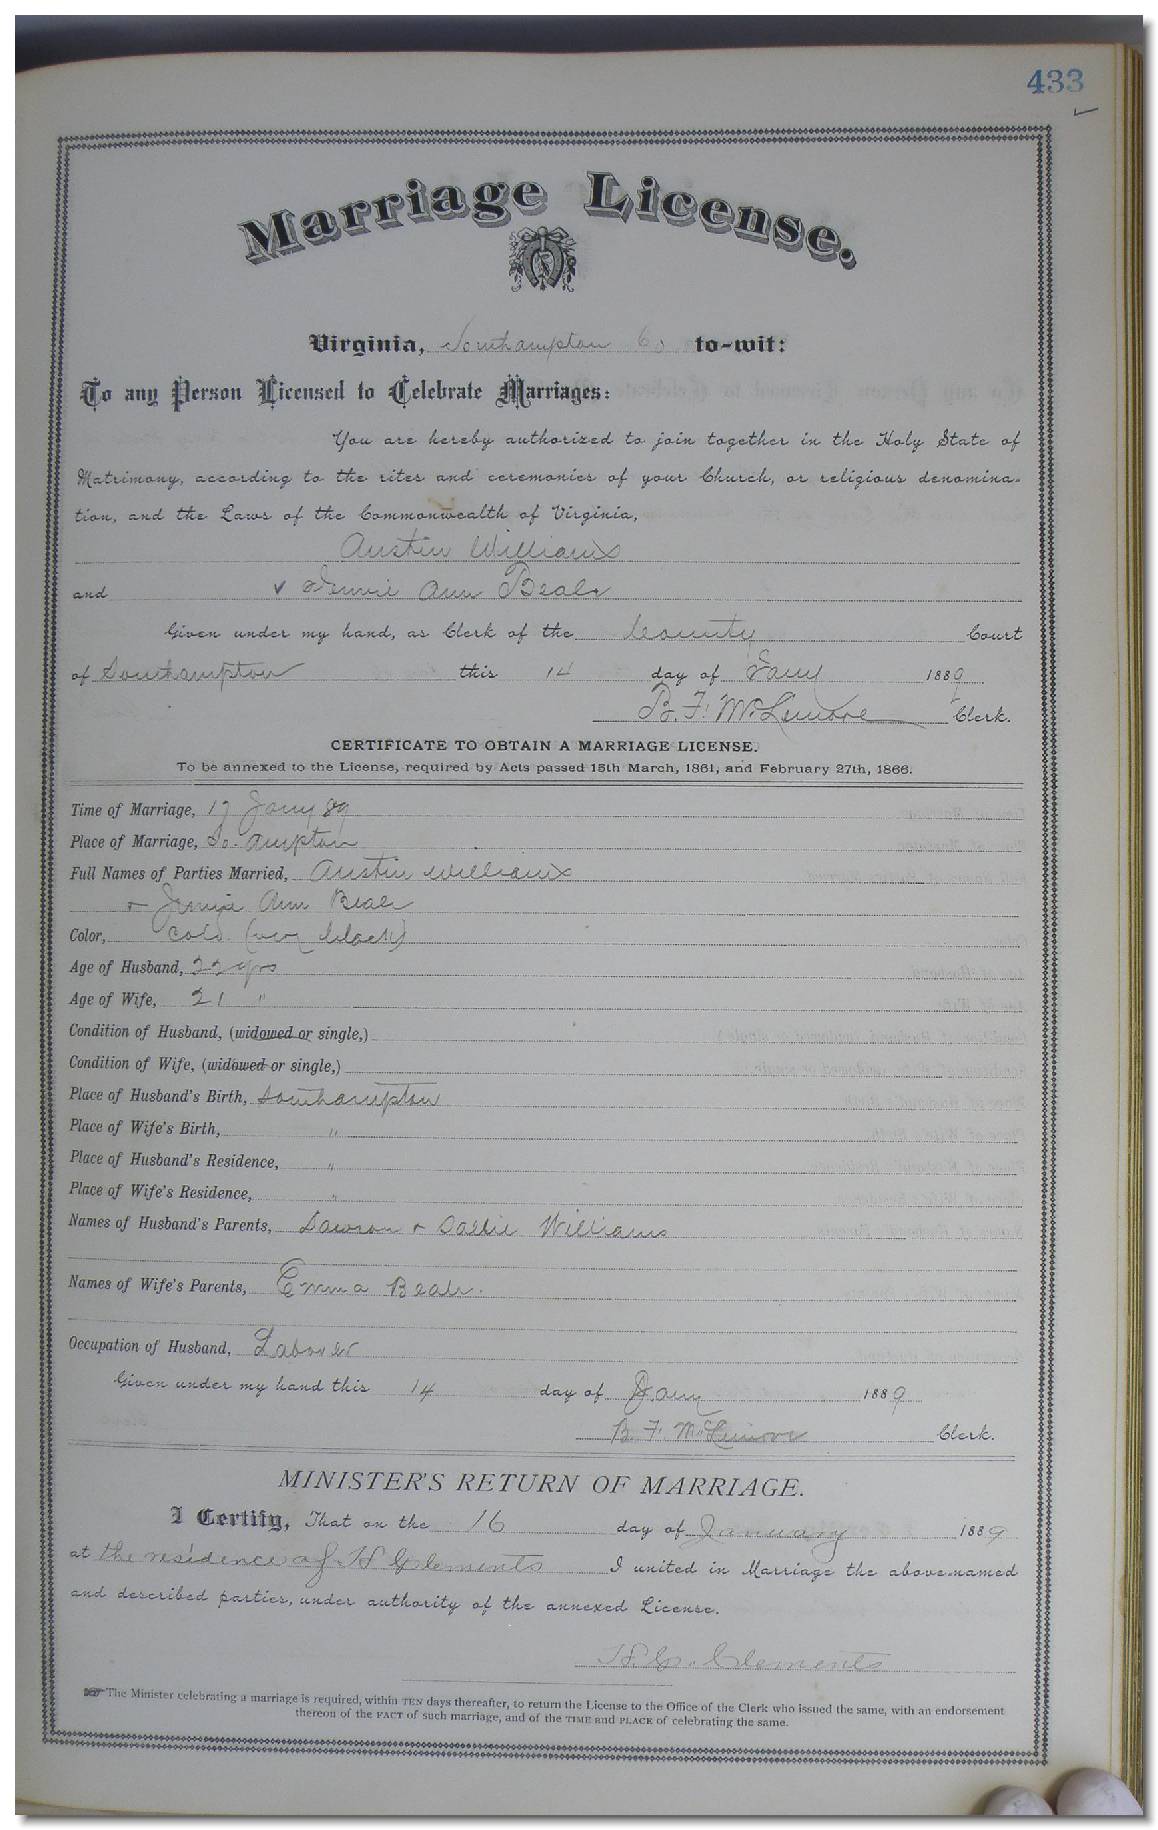 433
Marriage License.
Virginia, Southampton Co to-wit:
To any Person Licensed to Celebrate Marriages:
You are hereby authorized to join together in the Holy State of
Matrimony, according to the rites and ceremonies of your Church, or religious denomina-
tion, and the Laws of the Commonwealth of Virginia,
Austin Williams
and Jennie Ann Beale
Given under my hand, as Clerk of the County Court
of Southampton this 14 day of Jany 1889
B. F. McLemore Clerk.
CERTIFICATE TO OBTAIN A MARRIAGE LICENSE.
To be annexed to the License, required by Acts passed 15th March, 1861, and February 27th, 1866.
Time of Marriage, 17 Jany 89
Place of Marriage, So.ampton
Full Names of Parties Married, Austin Williams
+ Jennie Ann Beale
Color, Cold. (very black)
Age of Husband, 22 yrs
Age of Wife, 21 "
Condition of Husband, (widowed or single,)
Condition of Wife, (widowed or single,)
Place of Husband's Birth, Southampton
Place of Wife's Birth, "
Place of Husband's Residence, "
Place of Wife's Residence, "
Names of Husband's Parents, Dawson + Sallie Williams
Names of Wife's Parents, Emma Beale.
Occupation of Husband, Laborer
Given under my hand this 14 day of Jany 1889
B. F. McLemore Clerk.
MINISTER'S RETURN OF MARRIAGE.
I Certify, That on the 16 day of January 1889
at the residence of H G Clements I united in Marriage the above-named
and described parties, under authority of the annexed License.
H. G. Clements
The Minister celebrating a marriage is required, within TEN days thereafter, to return the License to the Office of the Clerk who issued the same, with an endorsement
thereon of the FACT of such marriage, and of the TIME and PLACE of celebrating the same.